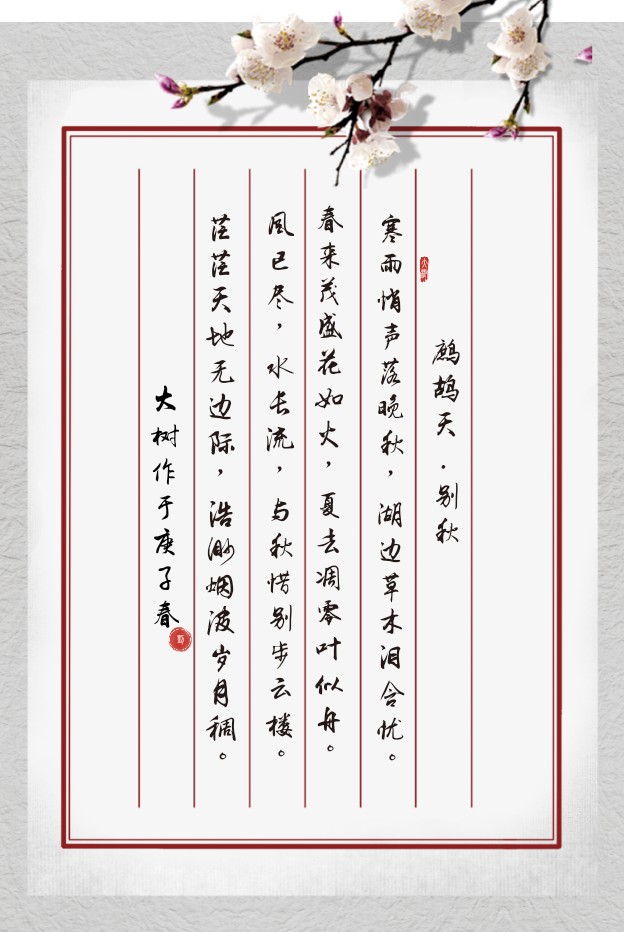 鹧鸪天·别秋
寒雨悄声落晚秋，湖边草木泪含忧。
春来茂盛花如火，夏去凋零叶似舟。
风已尽，水长流，与秋惜别步云楼。
茫茫天地无边际，浩渺烟波岁月稠。
大树作于庚子春